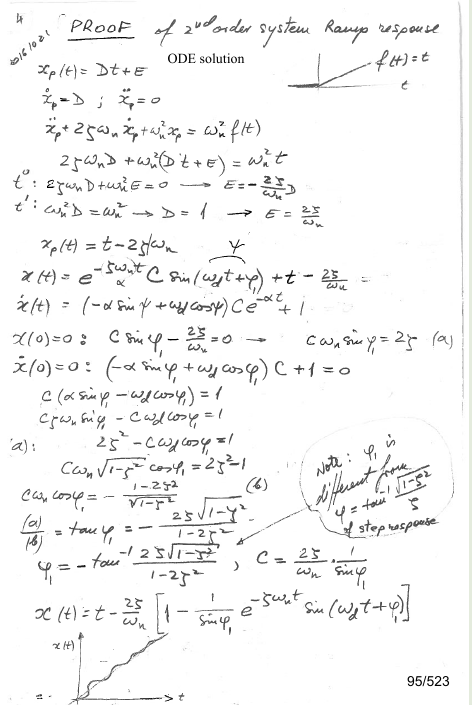 4
20161021
PROOF of 2nd order system Ramp response
ODE solution
f(t)=t
t
xₚ(t)= Dt+E
ẋₚ=D ; ẍₚ=0
ẍₚ+2ζωₙẋₚ+ωₙ²xₚ = ωₙ²f(t)
2ζωₙD+ωₙ²(Dt+E)=ωₙ²t
t⁰: 2ζωₙD+ωₙ²E=0 → E=-2ζ/ωₙ D
t¹: ωₙ²D=ωₙ² → D=1 → E=2ζ/ωₙ
xₚ(t)=t-2ζ/ωₙ
ψ
x(t)=e^(-ζωₙt) C sin(ω_d t+φ₁)+t-2ζ/ωₙ =
α
ẋ(t)=(-α sinψ+ω_d cosψ)Ce^(-αt)+1
x(0)=0: C sinφ₁-2ζ/ωₙ=0 → Cωₙ sinφ₁=2ζ (a)
ẋ(0)=0: (-α sinφ₁+ω_d cosφ₁)C+1=0
C(α sinφ₁-ω_d cosφ₁)=1
Cζωₙ sinφ₁-Cω_d cosφ₁=1
(a): 2ζ²-Cω_d cosφ₁=1
Cωₙ√(1-ζ²) cosφ₁=2ζ²-1
Cωₙ cosφ₁=-(1-2ζ²)/√(1-ζ²) (b)
Note: φ₁ is
different from
φ=tan⁻¹ √(1-ζ²)/ζ
of step response
(a)/(b) = tanφ₁ = -2ζ√(1-ζ²)/(1-2ζ²)
φ₁=-tan⁻¹ 2ζ√(1-ζ²)/(1-2ζ²) , C=2ζ/ωₙ · 1/sinφ₁
x(t)=t-2ζ/ωₙ [1-1/sinφ₁ e^(-ζωₙt) sin(ω_d t+φ₁)]
x(t)
t
95/523